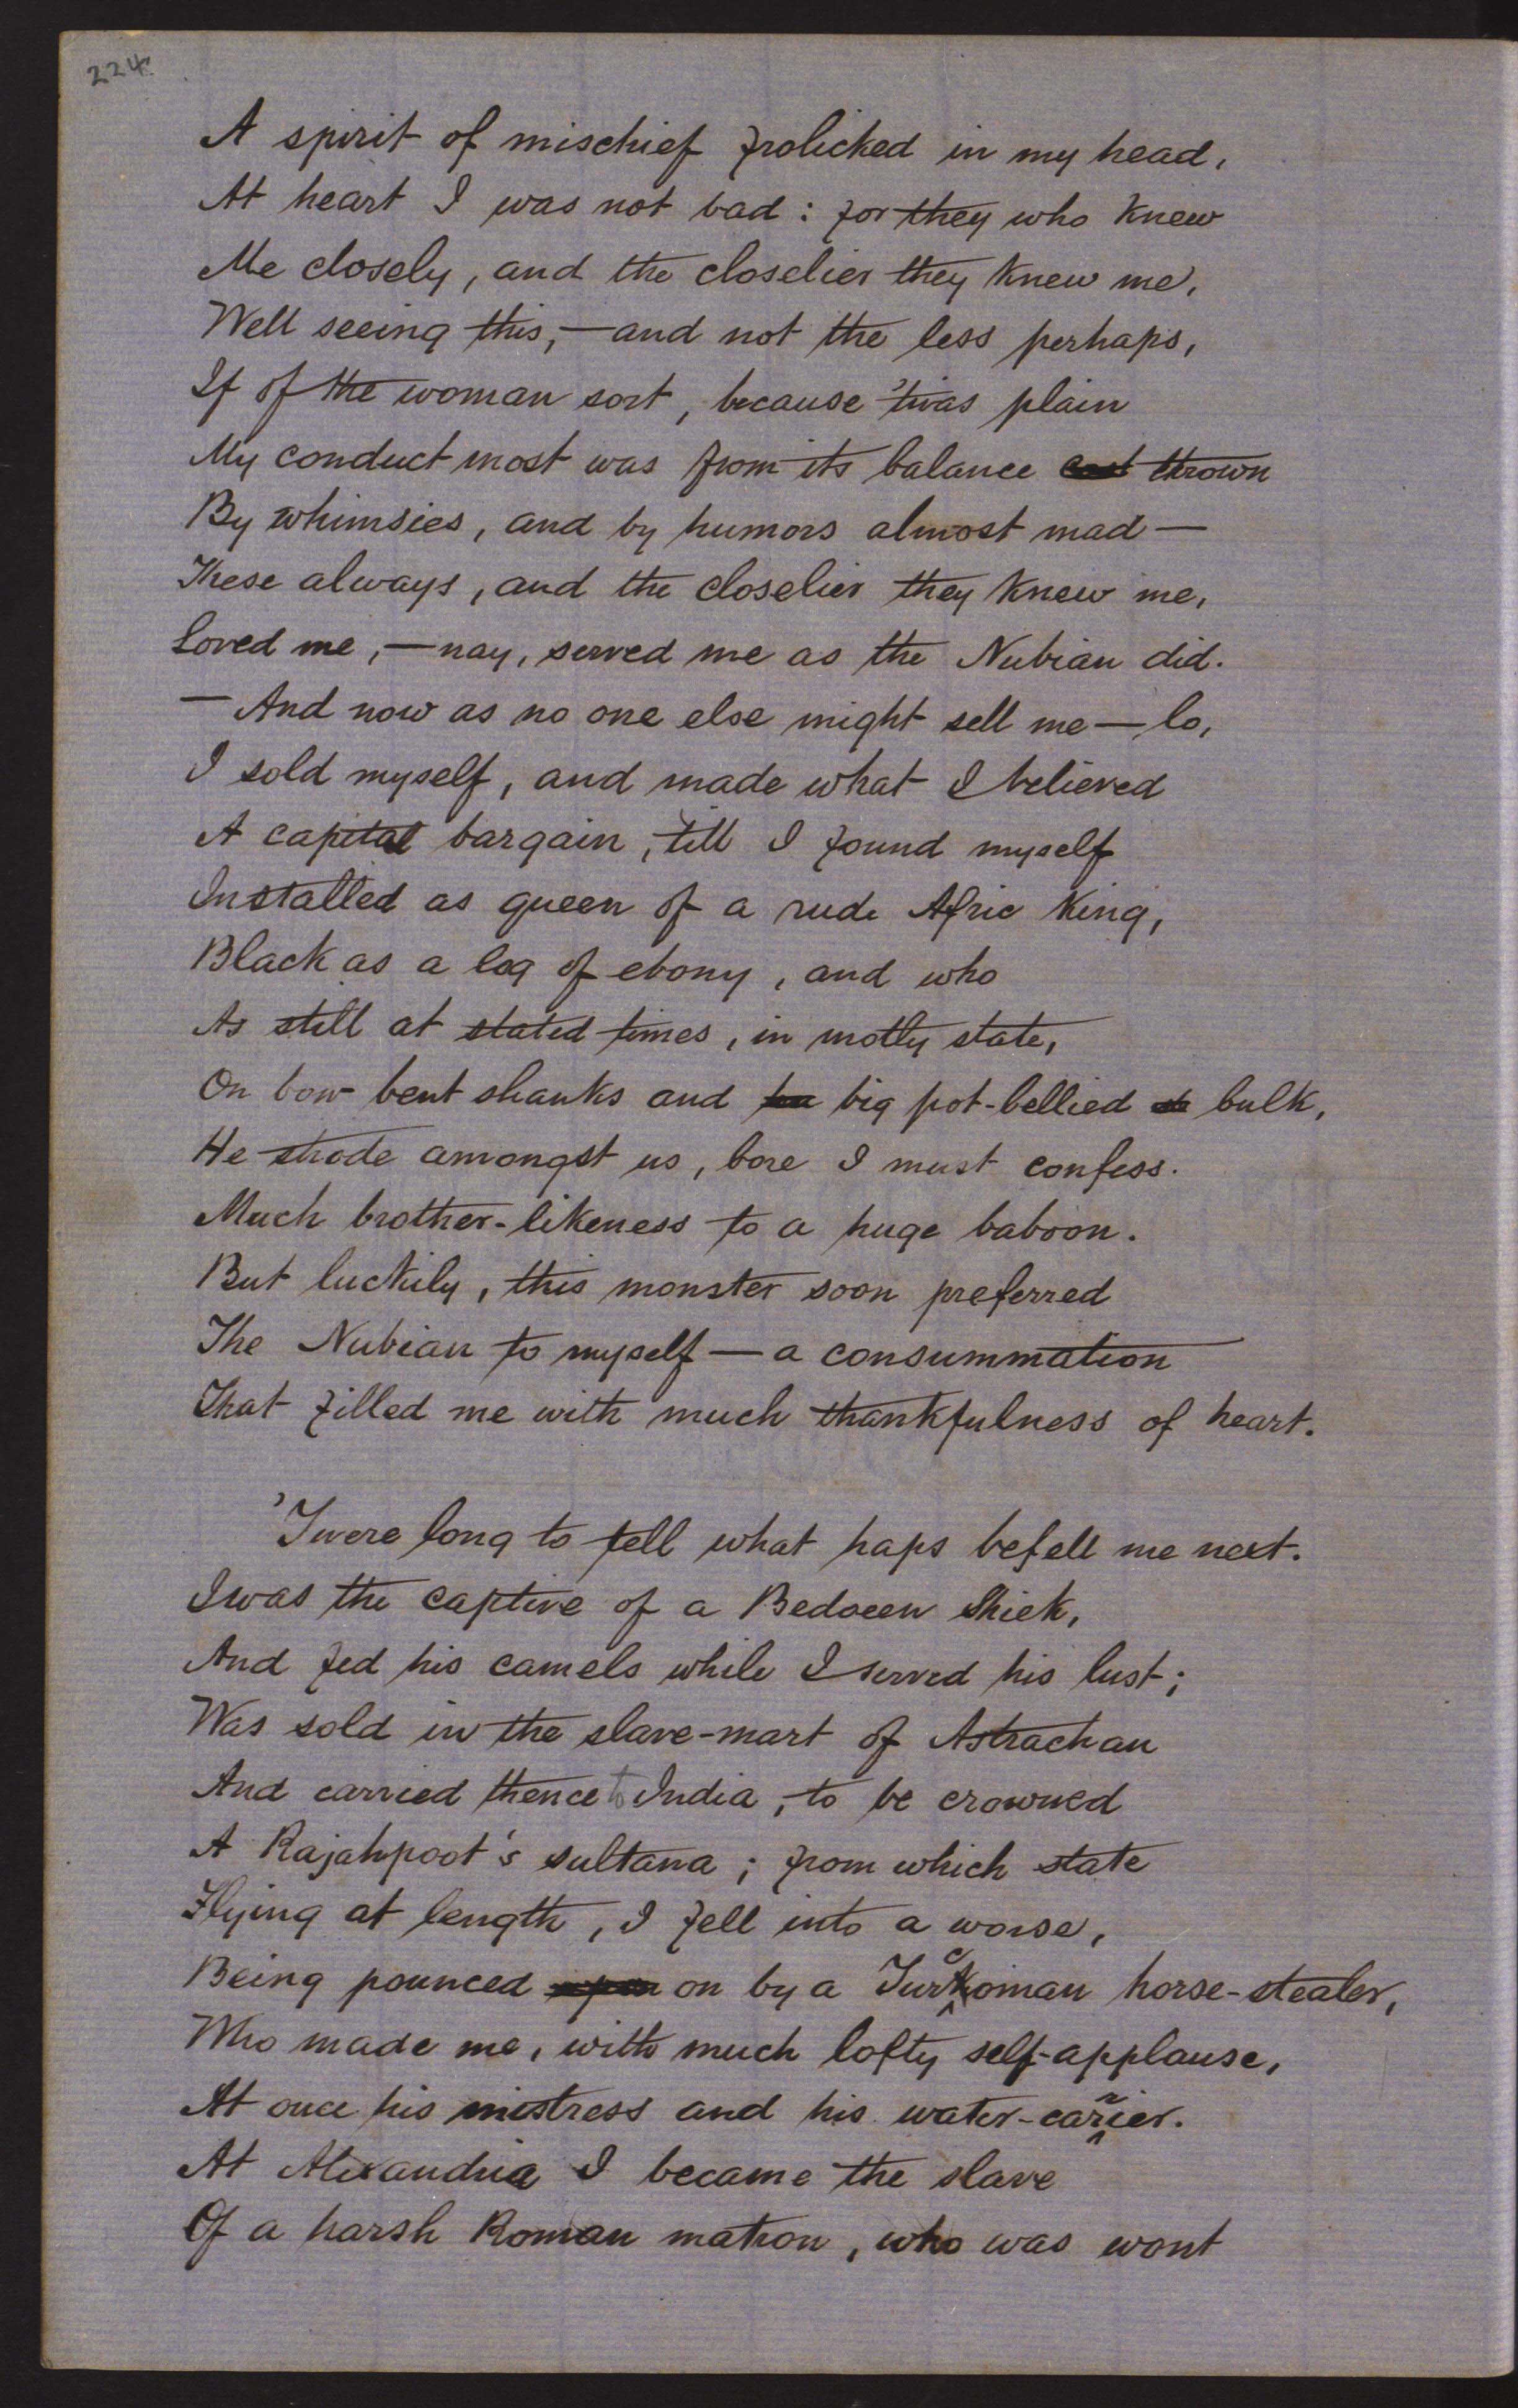 224.
A spirit of mischief frolicked in my head,
At heart I was not bad: for they who knew
Me closely, and the closelier they knew me,
Well seeing this,—and not the less perhaps,
If of the woman sort, because 'twas plain
My conduct most was from its balance cast thrown
By whimsies, and by humors almost mad—
These always, and the closelier they knew me,
Loved me,—nay, served me as the Nubian did.
—And now as no one else might sell me—lo,
I sold myself, and made what I believed
A capital bargain, till I found myself
Installed as queen of a rude Afric King,
Black as a log of ebony, and who
As still at stated times, in motly state,
On bow-bent shanks and big pot-bellied bulk,
He strode amongst us, bore I must confess.
Much brother-likeness to a huge baboon.
But luckily, this monster soon preferred
The Nubian to myself—a consummation
That filled me with much thankfulness of heart.
'Twere long to tell what haps befell me next.
I was the captive of a Bedoeen Shiek,
And fed his camels while I served his lust;
Was sold in the slave-mart of Astrachan
And carried thence to India, to be crowned
A Rajahpoot's sultana; from which state
Flying at length, I fell into a worse,
Being pounced upon on by a Turcoman horse-stealer,
Who made me, with much lofty self-applause,
At once his mistress and his water-carrier.
At Alexandria I became the slave
Of a harsh Roman matron, who was wont